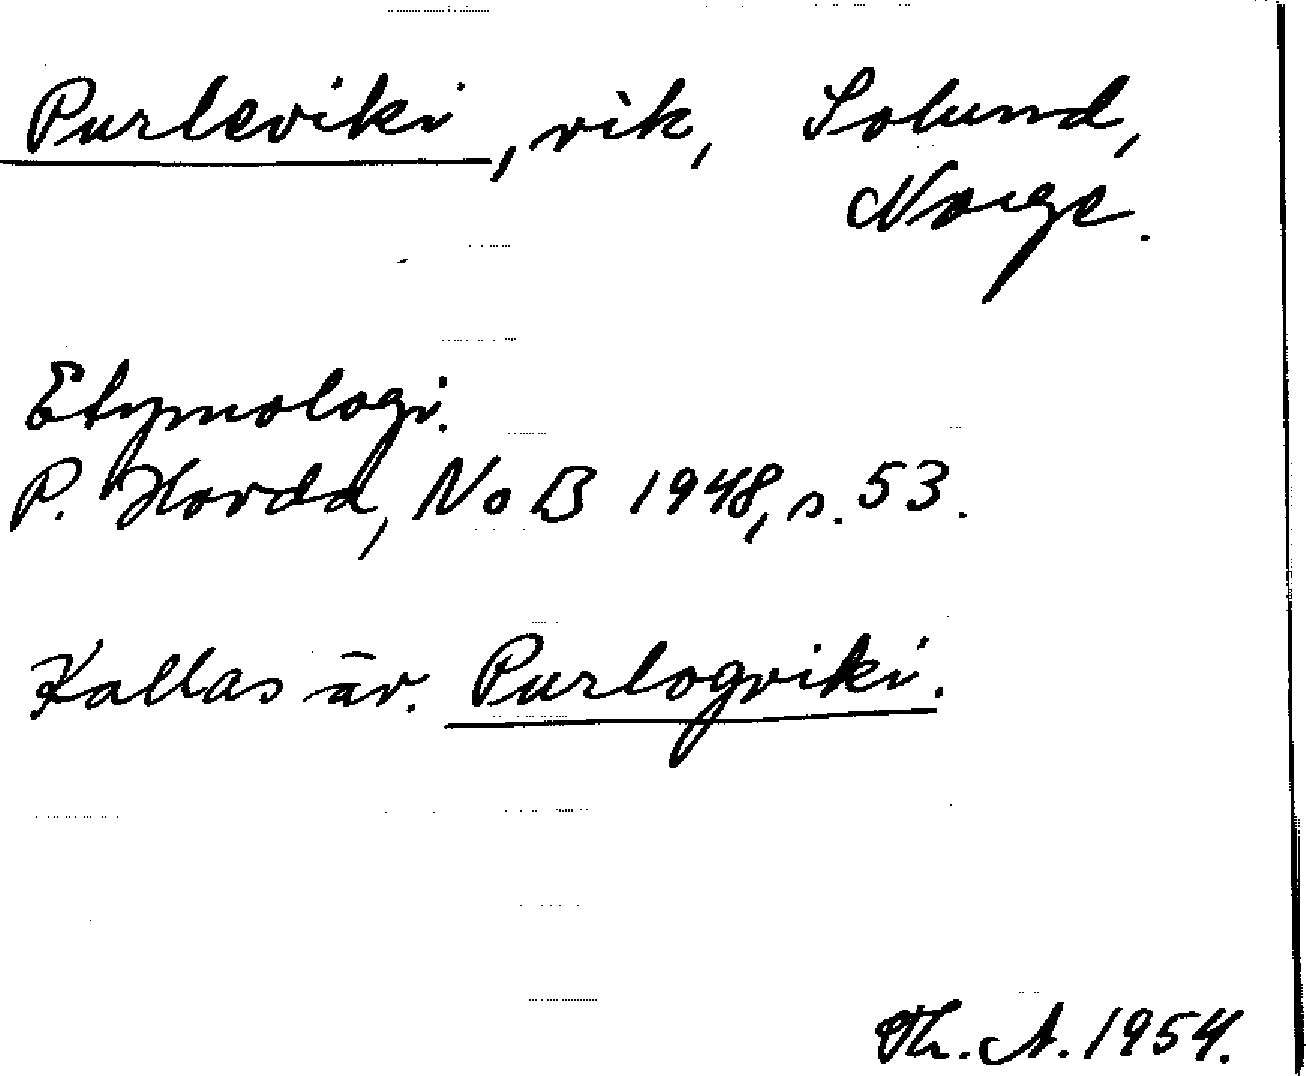 Purleviki, vik, Solund,
Norge.
Etymologi.
P. Hovda, NoB 1948, s. 53.
Kallas äv. Purlogviki.
Th. A. 1954.